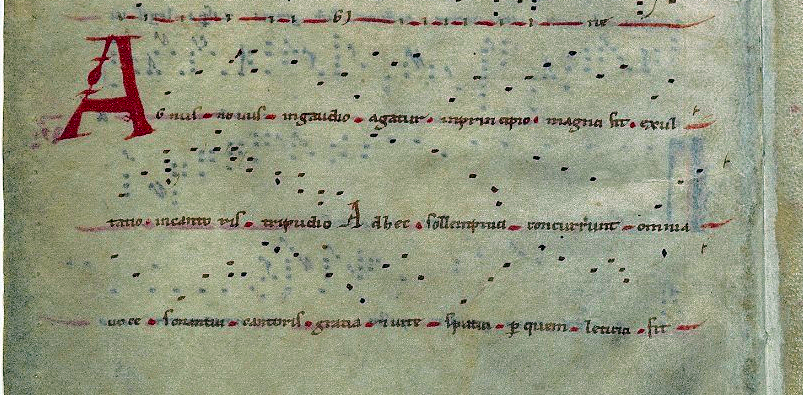 Annus nouus ingaudio agatur inprincipio magna sit exul
tatio incanto ris tripudio Ad hec sollempnia concurrunt omnia
uoce sonantia cantoris gratia ⁊ uite spatia ꝑ quem leticia fit